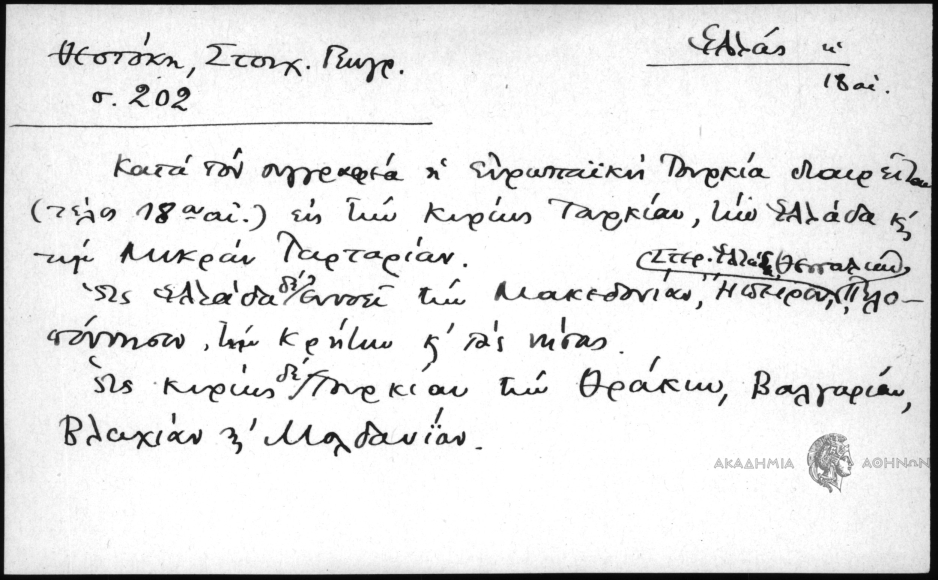 Θεοτόκη, Στοιχ. Γεωγρ.
σ. 202
Ἑλλάς κ'
18 αἰ.
Κατά τόν συγγραφέα ἡ Εὐρωπαϊκή Τουρκία διαιρεῖται
(τέλος 18ου αἰ.) εἰς τήν κυρίως Τουρκίαν, τήν Ἑλλάδα κ'
τήν Μικράν Ταρταρίαν.
Στερ. Ἑλλάδα, Θεσσαλίαν
Ὡς Ἑλλάδα δέ ἐννοεῖ τήν Μακεδονίαν, Ἤπειρον, Πελο-
πόννησον, τήν Κρήτην κ' τάς νήσους.
Ὡς κυρίως δέ Τουρκίαν τήν Θράκην, Βουλγαρίαν,
Βλαχίαν κ' Μολδαυΐαν.
ΑΚΑΔΗΜΙΑ ΑΘΗΝΩΝ